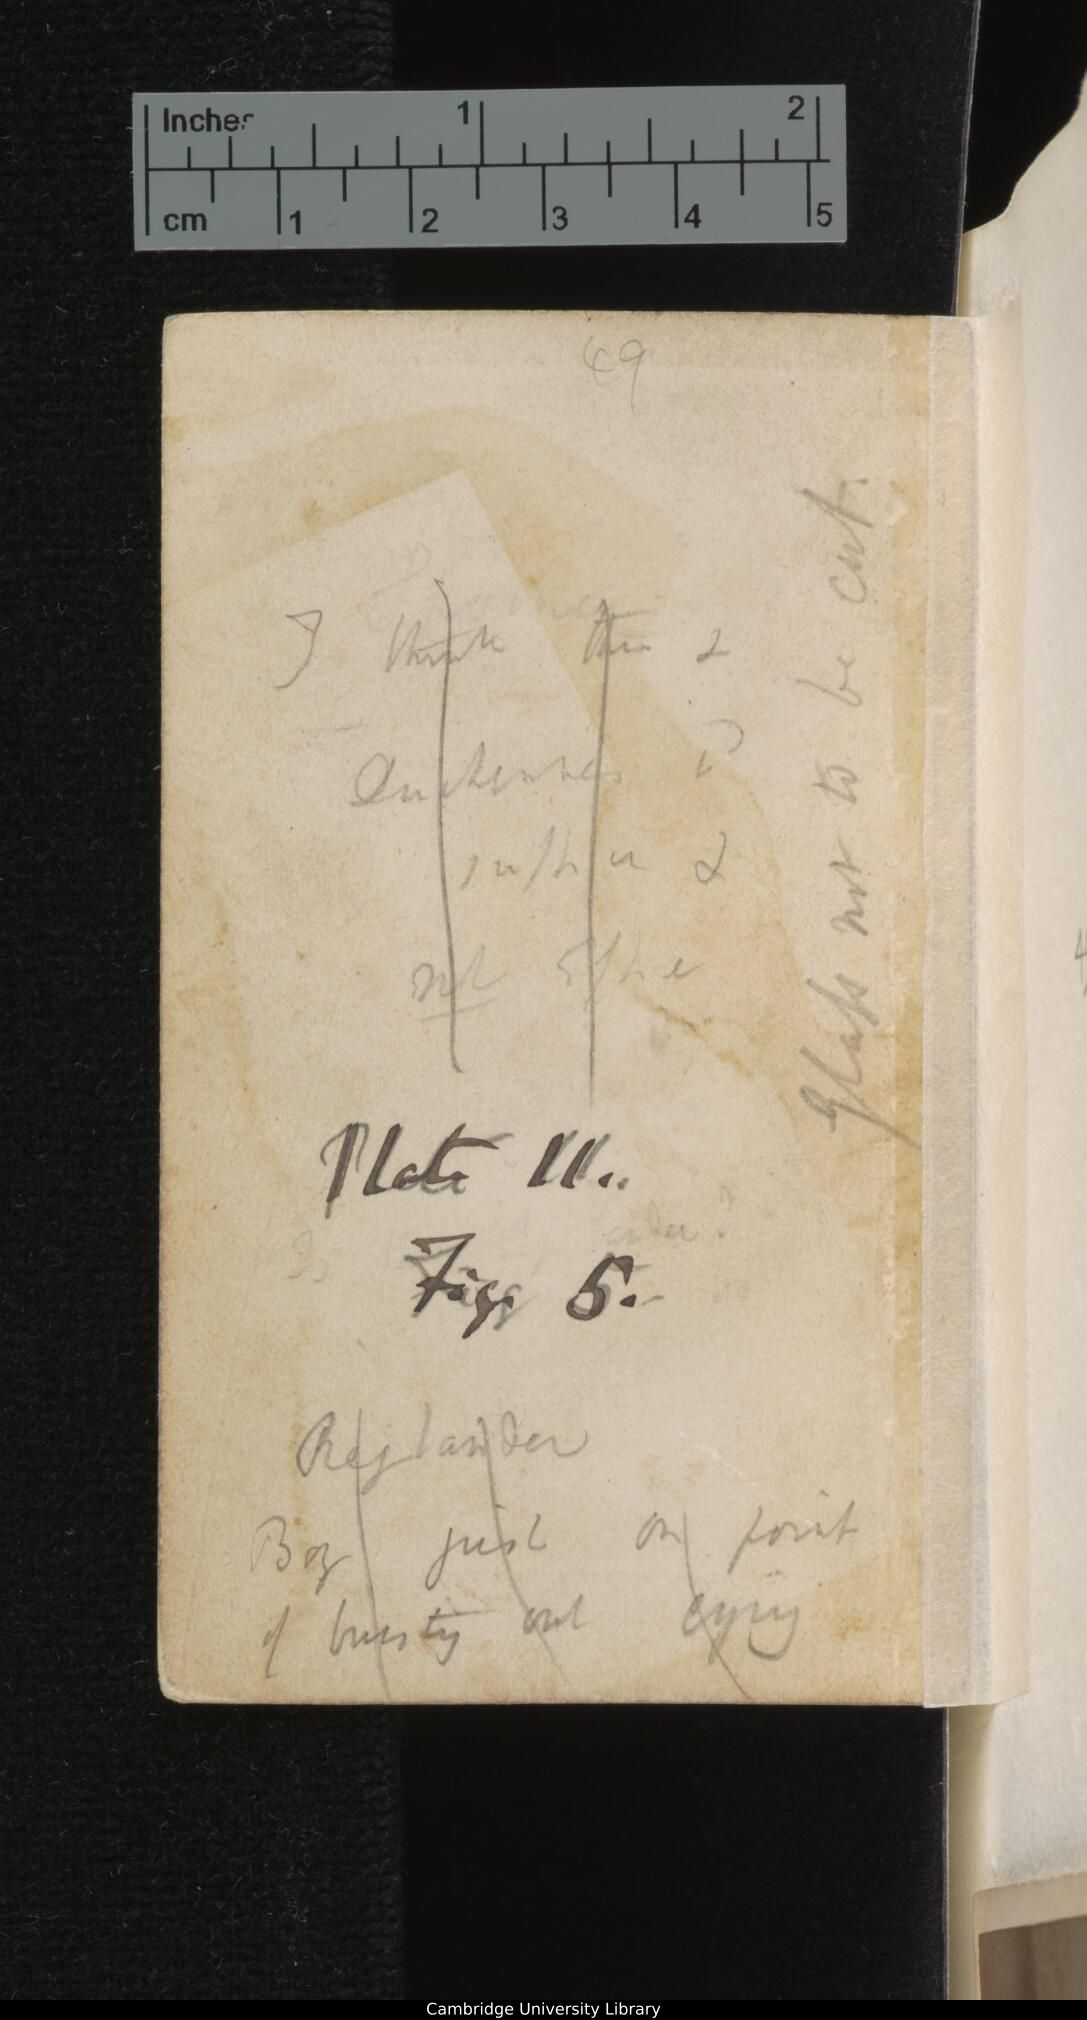 Inches 1 2
cm 1 2 3 4 5
49
I think this &
Duchennes
suffice &
not other
Glass not to be cut.
Plate II..
Figs 5.
Rejlander
Boy just on point
of bursting out crying
Cambridge University Library